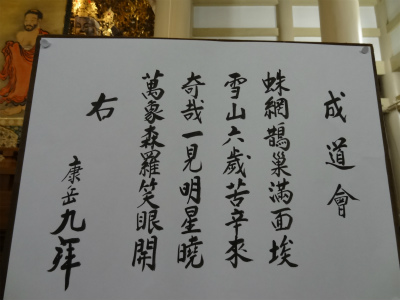 成道會
蛛網鵲巢滿面埃
雪山六歲苦辛來
奇哉一見明星曉
萬象森羅笑眼開
右
康岳九拜